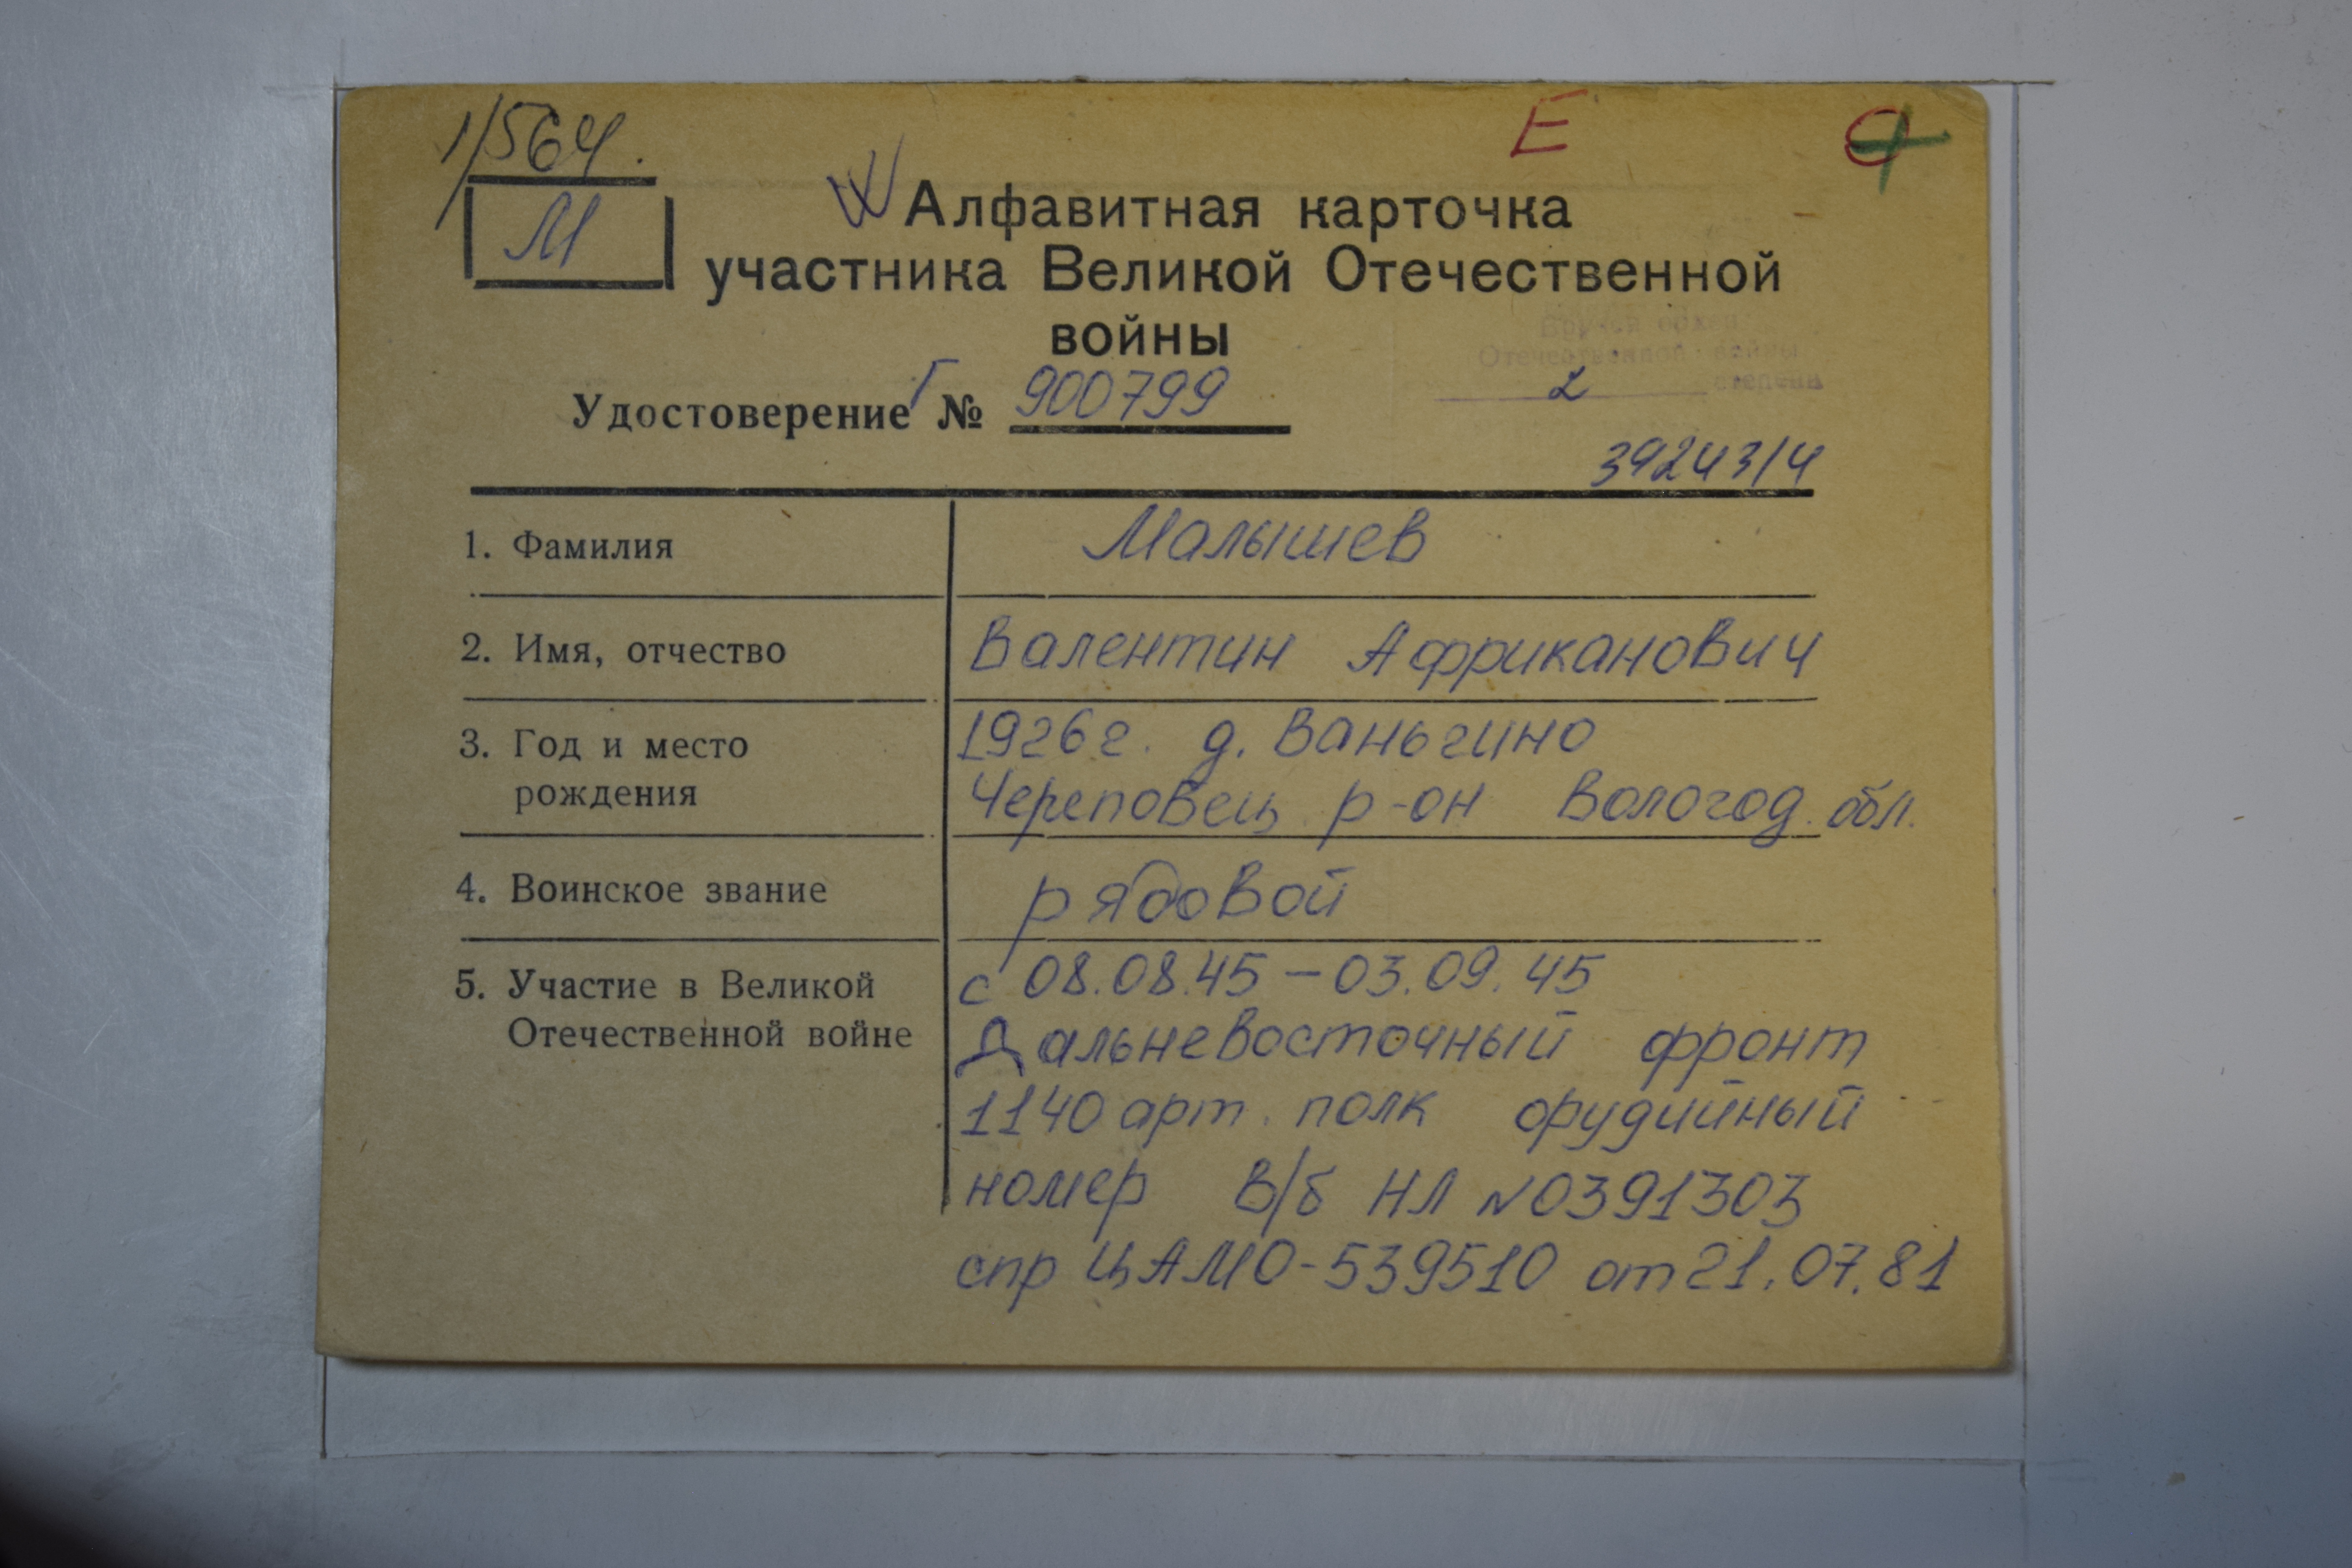 1/564.
Е
М
Алфавитная карточка
участника Великой Отечественной
войны
Вручен орден
Отечественной войны
2 степени
Удостоверение Г № 900799
3924314
1. Фамилия Малышев
2. Имя, отчество Валентин Африканович
3. Год и место 1926г. д. Ваньгино
рождения Череповец р-он Вологод. обл.
4. Воинское звание рядовой
5. Участие в Великой с 08.08.45 – 03.09.45
Отечественной войне Дальневосточный фронт
1140 арт. полк орудийный
номер в/б НЛ N0391303
спр ЦАМО-539510 от 21.07.81